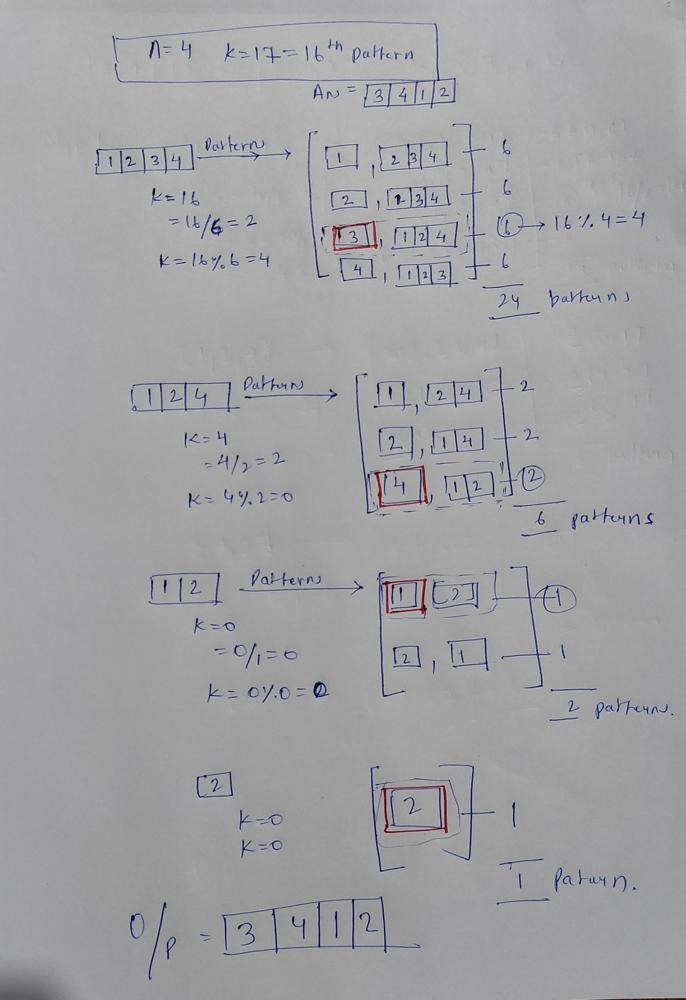 n=4 K=17=16th pattern
Ans = 3 4 1 2
1 2 3 4 Pattern 1 , 2 3 4 6
K=16 2 , 1 3 4 6
=16/6=2 3 , 1 2 4 6 → 16%4=4
K=16%6=4 4 , 1 2 3 6
24 patterns
1 2 4 Patterns 1 , 2 4 2
K=4 2 , 1 4 2
=4/2=2
K=4%2=0 4 , 1 2 2
6 patterns
1 2 Patterns 1 2 1
K=0
=0/1=0 2 , 1 1
K=0%0=0
2 patterns.
2 2 1
K=0
K=0
1 paturn.
O/P = 3 4 1 2